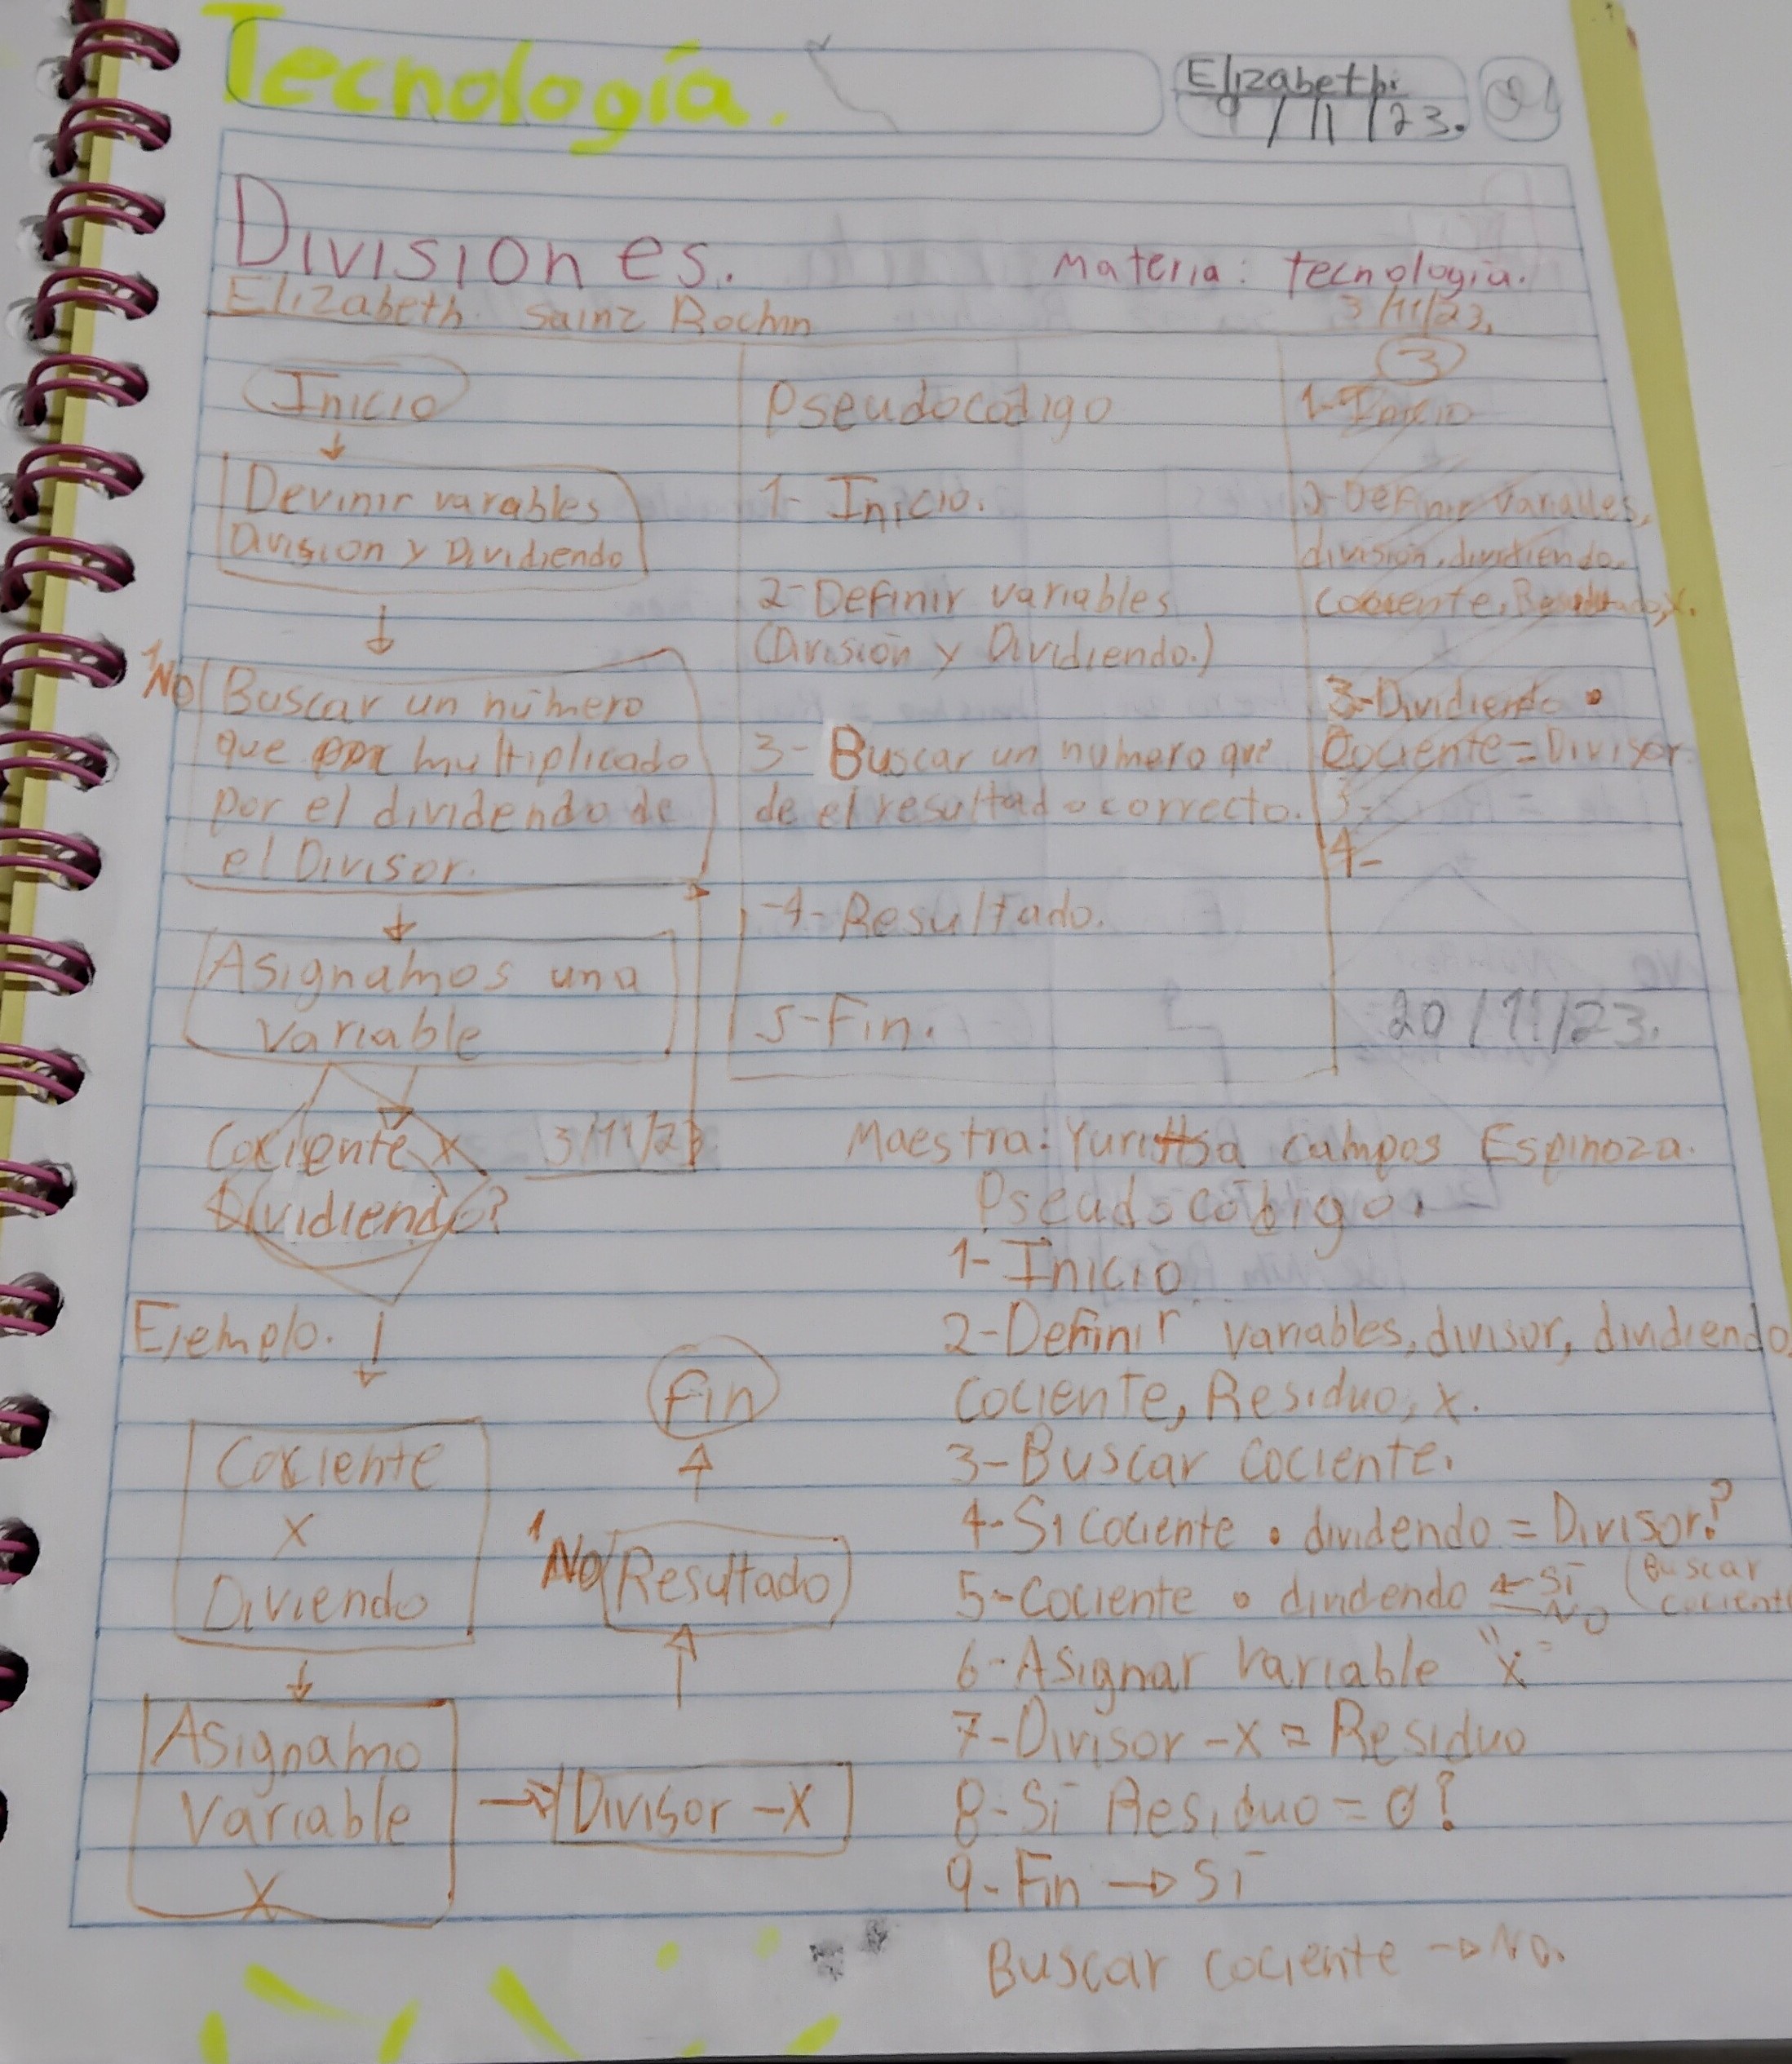 Tecnología.
Elizabeth:
9/11/23.
Divisiones.
Materia: tecnologia.
Elizabeth. Sainz Rochin
3/11/23.
Inicio
Devinir varables
Division y Dividiendo
No Buscar un número
que multiplicado
por el dividendo de
el Divisor.
Asignamos una
variable
Cociente x
Dividiendo?
3/11/23
Ejemplo.
Cociente
X
Diviendo
Asignamo
Variable
X
Divisor -X
No Resultado
Fin
Pseudocódigo
1- Inicio.
2- Definir variables
(División y Dividiendo.)
3- Buscar un numero que
de el resultado correcto.
-4- Resultado.
5- Fin.
3
1- Inicio
2- Definir variables,
división, dividiendo.
cociente, Resultado, x.
3- Dividiendo •
Cociente = Divisor
3-
4-
20/11/23.
Maestra: Yuritsa campos Espinoza.
Pseudocódigo.
1- Inicio
2- Definir variables, divisor, dividiendo
cociente, Residuo, x.
3- Buscar cociente.
4- Si cociente • dividendo = Divisor?
5- Cociente • dividendo ← Sí (Buscar
No cociente
6- Asignar variable "x"
7- Divisor -x = Residuo
8- Sí Residuo = 0?
9- Fin → Sí
Buscar cociente → No.